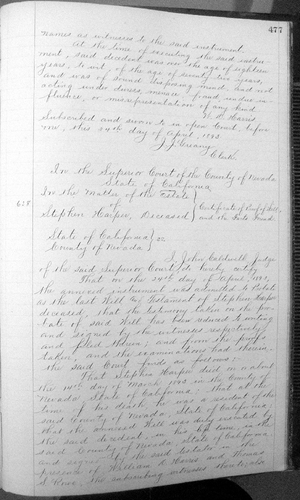 477
names as witnesses to the said instrument.
At the time of executing the said instru-
ment, said decedent was over the age of eighteen
years, to wit, of the age of seventy six years,
and was of sound disposing mind, and not
acting under duress, menace, fraud, undue in-
fluence, or misrepresentation of any kind.
W. R. Harris
Subscribed and sworn to in open Court, before
me, this 24th day of April, 1893.
Clerk.
In the Superior Court of the County of Nevada
State of California,
In the Matter of the Estate
of
Stephen Harper, Deceased
Certificate of Proof of Will,
and the Facts Found.
State of California
County of Nevada } ss
I, John Caldwell, Judge
of the said Superior Court, do hereby certify:
That on the 24th day of April, 1893,
the annexed instrument was admitted to Probate
as the last Will and Testament of Stephen Harper
deceased, that the testimony taken on the pro-
bate of said Will has been reduced to writing
and signed by the witnesses respectively
and filed therein; and from the proofs
taken, and the examinations had therein
the said Court finds as follows:
That Stephen Harper died on or about
the day of March, 1893, in the County of
Nevada, State of California. That at the
time of his death, he was a resident of the
said County of Nevada, State of California
that the annexed Will was duly executed by
the said decedent in his life time, in the
said County of Nevada, State of California
and signed by the said testator in the
presence of William R. Harris and Thomas
the subscribing witnesses thereto; also